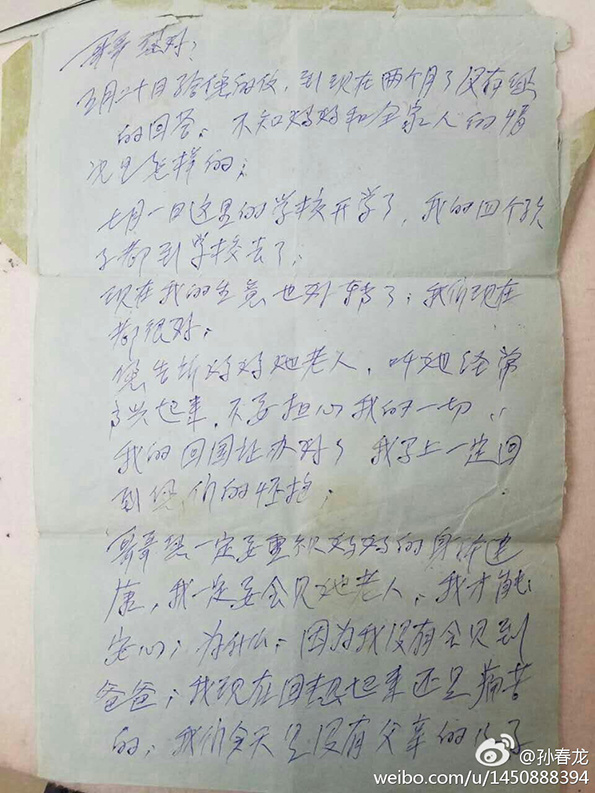 哥哥您好:
五月二十日给您的信,到现在两个月了没有您
的回答。不知妈妈和全家人的情
况是怎样的;
七月一日这里的学校开学了,我的四个孩
子都到学校去了;
现在我的生意也好转了;我们现在
都很好;
您告诉妈妈她老人,叫她经常
高兴起来,不要担心我的一切,
我的回国证办好了 我马上一定回
到您们的怀抱;
哥哥您一定要重视妈妈的身体健
康,我一定要会见她老人,我才能
安心;为什么;因为我没有会见到
爸爸;我现在回想起来还是痛苦
的;我们今天是没有父亲的
@孙春龙
weibo.com/u/1450888394